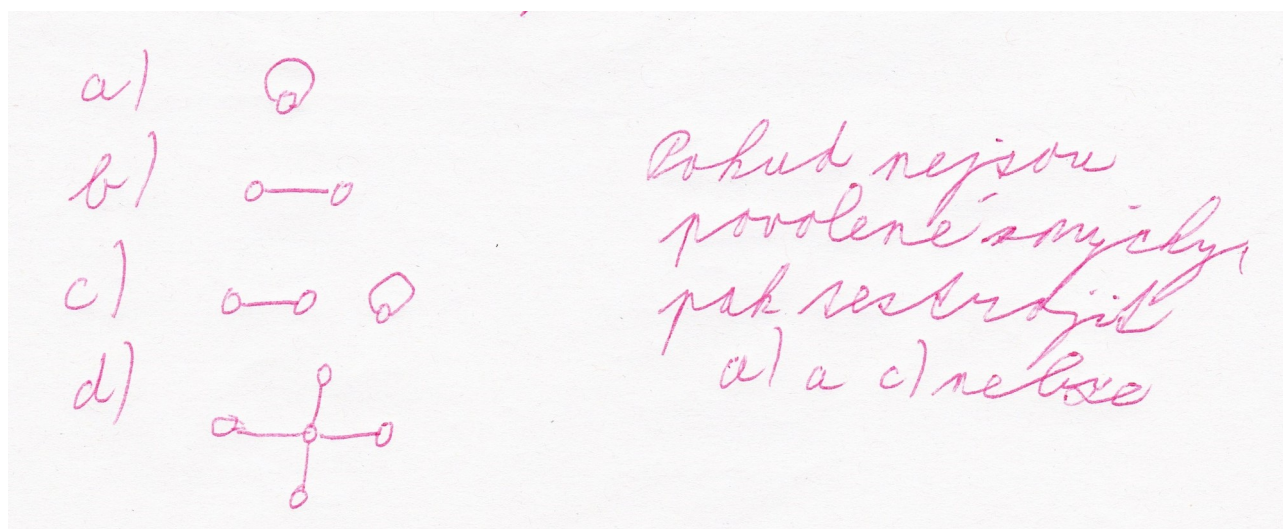 a)
b)
c)
d)
Pokud nejsou
povolené smyčky,
pak sestrojit
a) a c) nelze